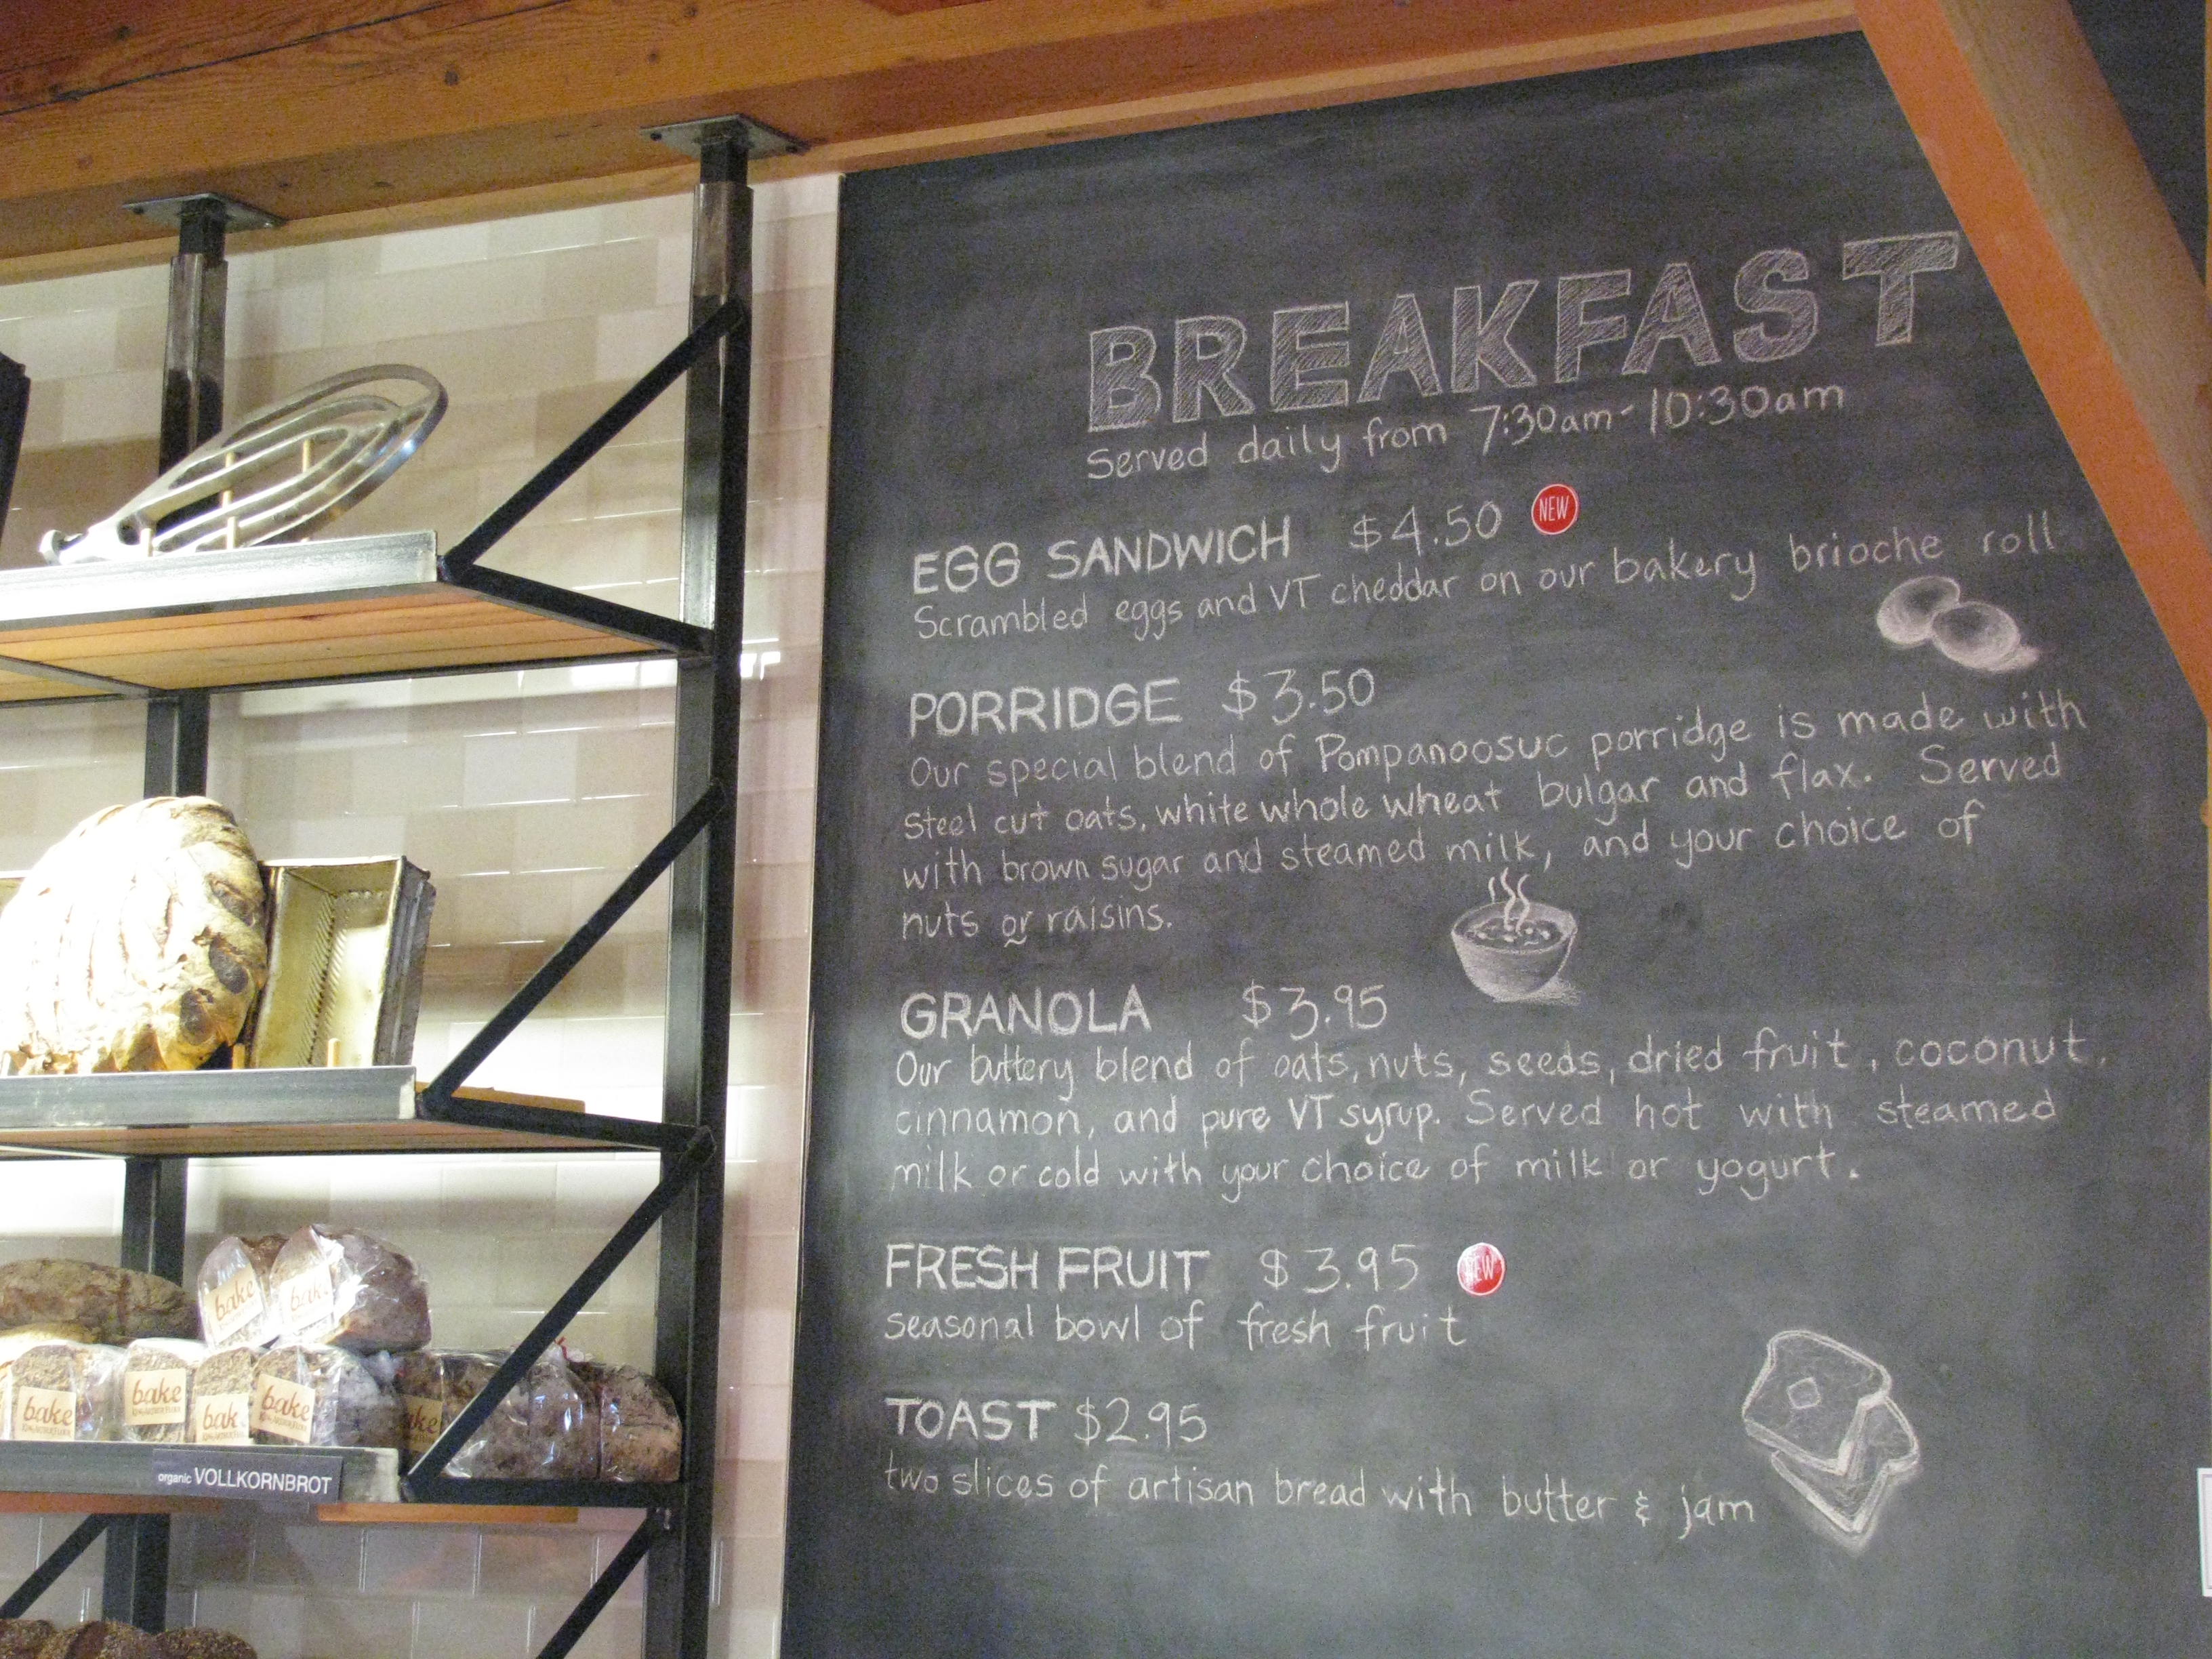 BREAKFAST
Served daily from 7:30am-10:30am
EGG SANDWICH $4.50 NEW
Scrambled eggs and VT cheddar on our bakery brioche roll
PORRIDGE $3.50
Our special blend of Pompanoosuc porridge is made with
steel cut oats, white whole wheat bulgar and flax. Served
with brown sugar and steamed milk, and your choice of
nuts or raisins.
GRANOLA $3.95
Our buttery blend of oats, nuts, seeds, dried fruit, coconut,
cinnamon, and pure VT syrup. Served hot with steamed
milk or cold with your choice of milk or yogurt.
FRESH FRUIT $3.95 NEW
seasonal bowl of fresh fruit
TOAST $2.95
two slices of artisan bread with butter & jam
bake
bake
bake
bake
bake
organic VOLLKORNBROT